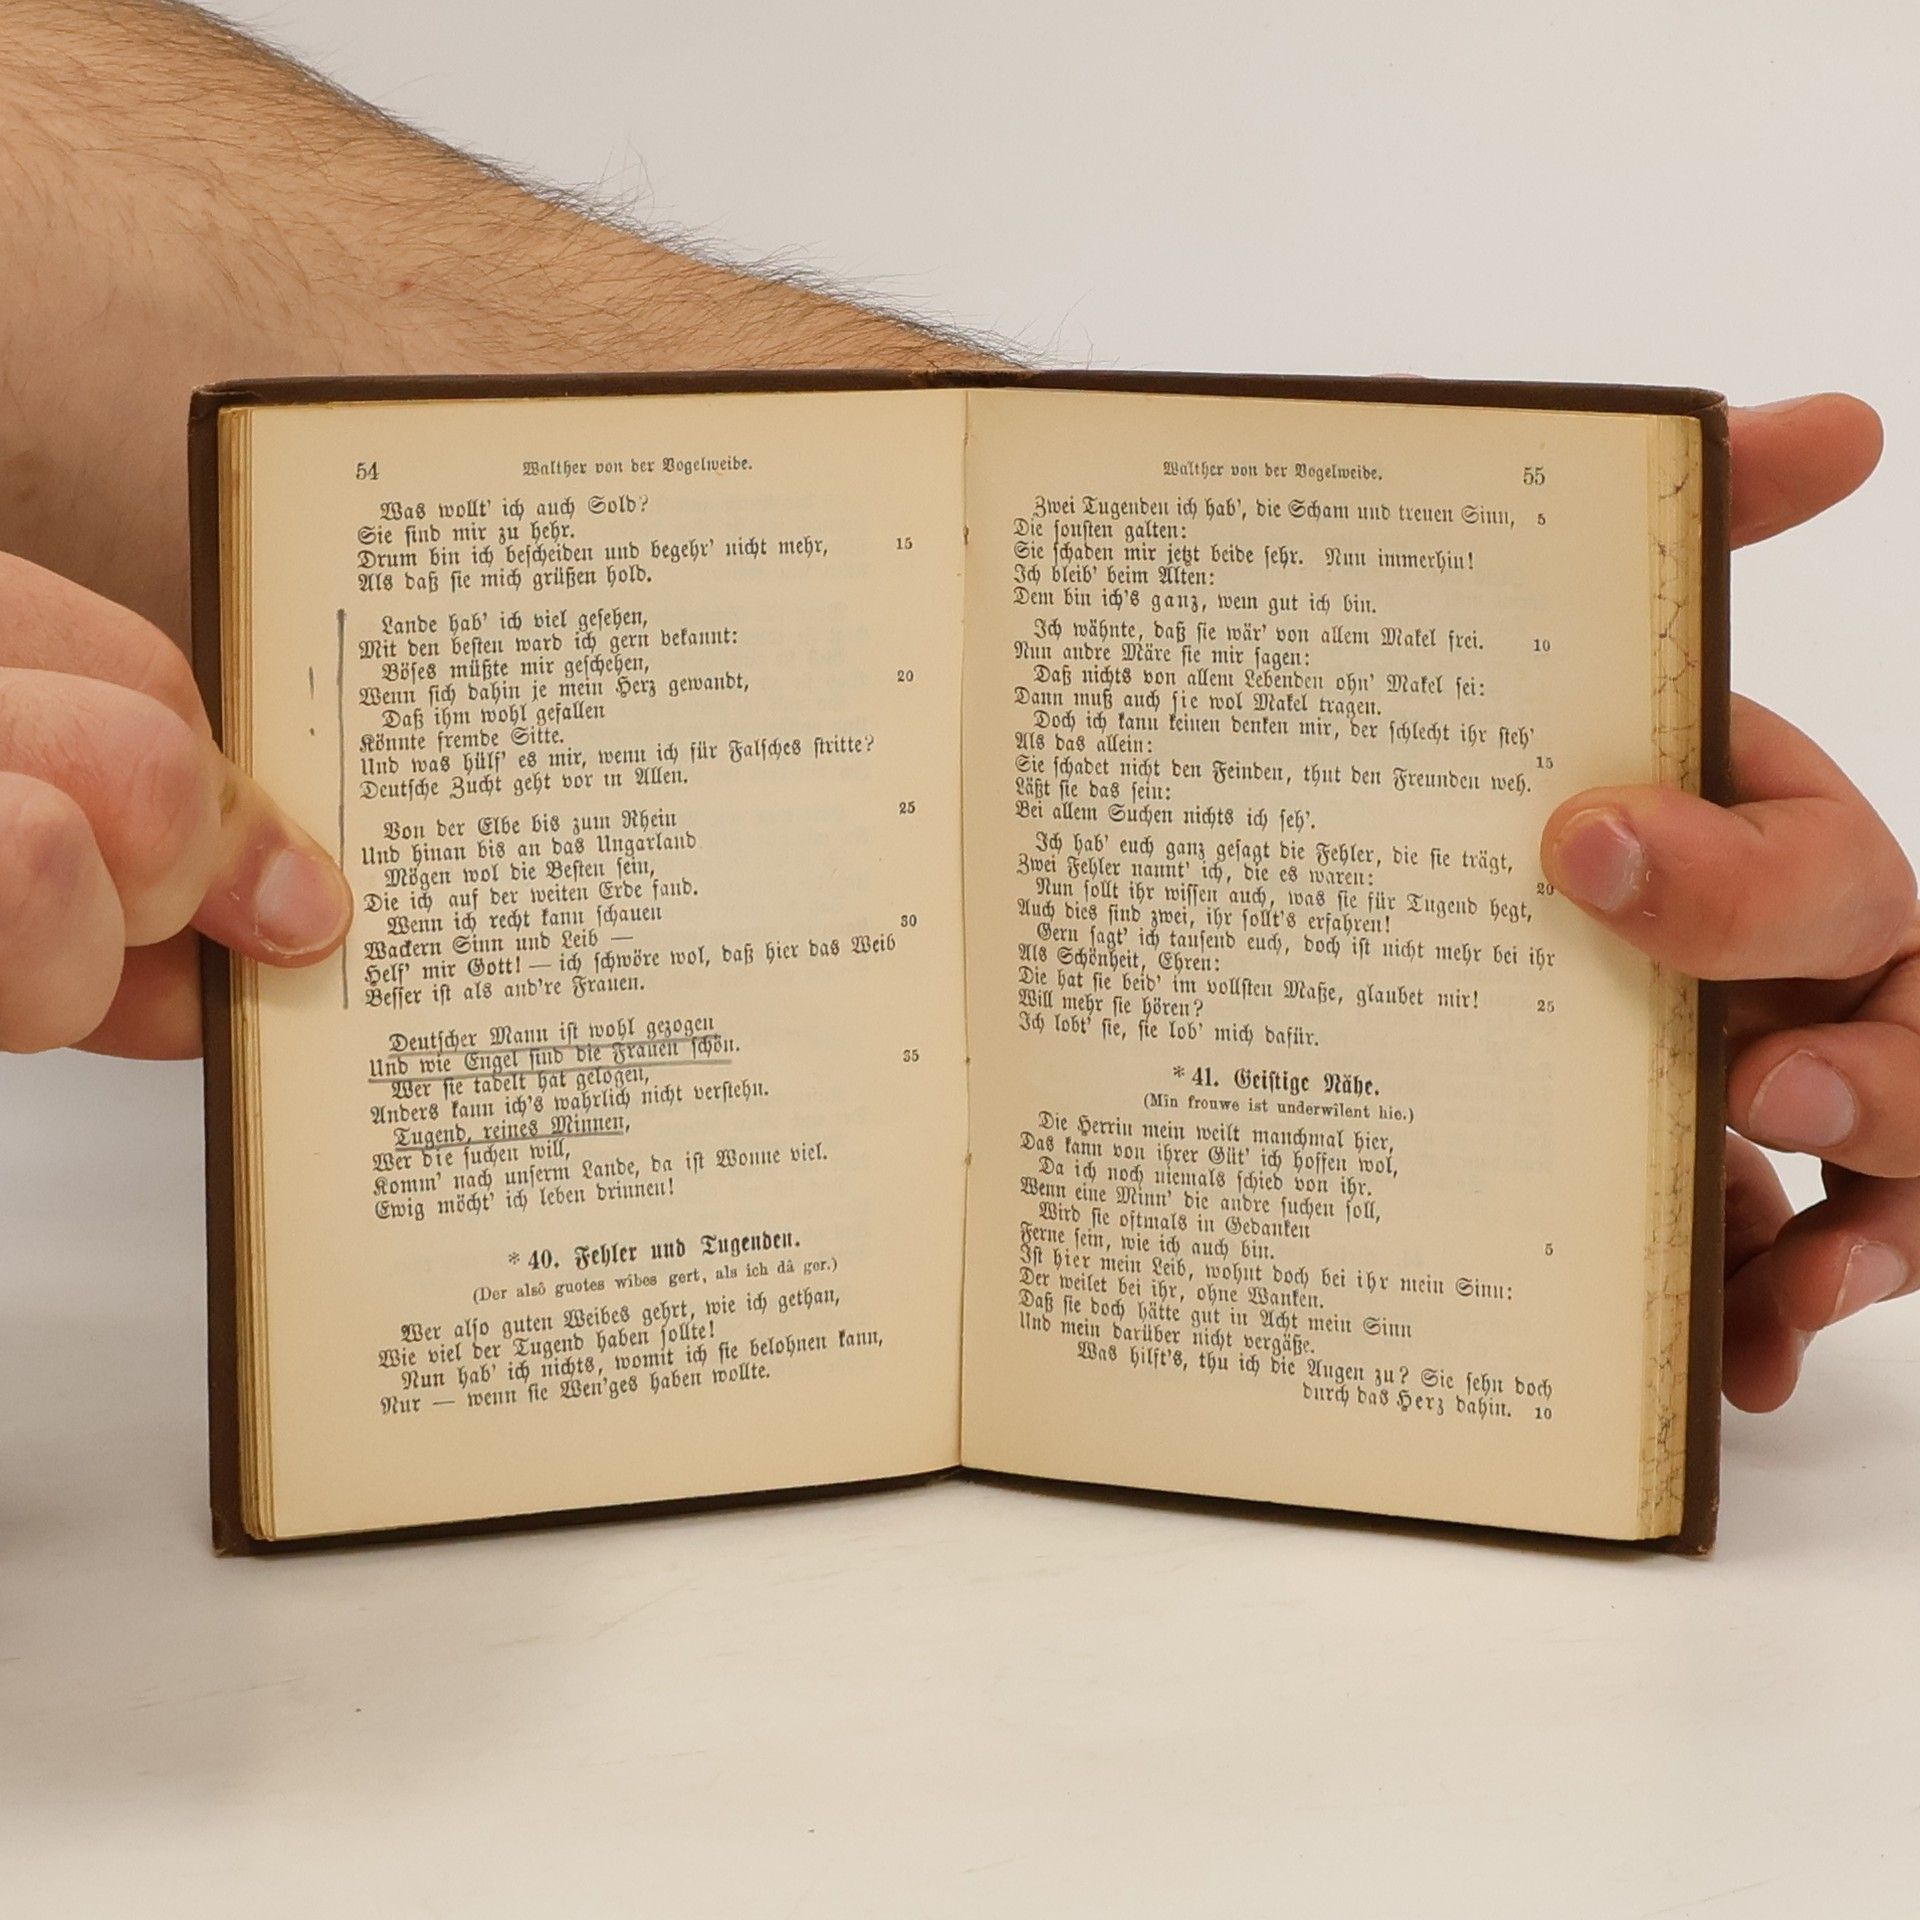 54 Walther von der Vogelweide.
Was wollt' ich auch Sold?
Sie sind mir zu hehr.
Drum bin ich bescheiden und begehr' nicht mehr, 15
Als daß sie mich grüßen hold.
Lande hab' ich viel gesehen,
Mit den besten ward ich gern bekannt:
Böses müßte mir geschehen,
Wenn sich dahin je mein Herz gewandt, 20
Daß ihm wohl gefallen
Könnte fremde Sitte.
Und was hülf' es mir, wenn ich für Falsches stritte?
Deutsche Zucht geht vor in Allen.
Von der Elbe bis zum Rhein 25
Und hinan bis an das Ungarland
Mögen wol die Besten sein,
Die ich auf der weiten Erde fand.
Wenn ich recht kann schauen
Wackern Sinn und Leib — 30
Helf' mir Gott! — ich schwöre wol, daß hier das Weib
Besser ist als and're Frauen.
Deutscher Mann ist wohl gezogen
Und wie Engel sind die Frauen schön.
Wer sie tadelt hat gelogen, 35
Anders kann ich's wahrlich nicht verstehn.
Tugend, reines Minnen,
Wer die suchen will,
Komm' nach unserm Lande, da ist Wonne viel.
Ewig möcht' ich leben drinnen!
* 40. Fehler und Tugenden.
(Der alsô guotes wîbes gert, als ich dâ ger.)
Wer also guten Weibes gehrt, wie ich gethan,
Wie viel der Tugend haben sollte!
Nun hab' ich nichts, womit ich sie belohnen kann,
Nur — wenn sie Wen'ges haben wollte.
Walther von der Vogelweide. 55
Zwei Tugenden ich hab', die Scham und treuen Sinn, 5
Die sonsten galten:
Sie schaden mir jetzt beide sehr. Nun immerhin!
Ich bleib' beim Alten:
Dem bin ich's ganz, wem gut ich bin.
Ich wähnte, daß sie wär' von allem Makel frei. 10
Nun andre Märe sie mir sagen:
Daß nichts von allem Lebenden ohn' Makel sei:
Dann muß auch sie wol Makel tragen.
Doch ich kann keinen denken mir, der schlecht ihr steh'
Als das allein: 15
Sie schadet nicht den Feinden, thut den Freunden weh.
Läßt sie das sein:
Bei allem Suchen nichts ich seh'.
Ich hab' euch ganz gesagt die Fehler, die sie trägt,
Zwei Fehler nannt' ich, die es waren: 20
Nun sollt ihr wissen auch, was sie für Tugend hegt,
Auch dies sind zwei, ihr sollt's erfahren!
Gern sagt' ich tausend euch, doch ist nicht mehr bei ihr
Als Schönheit, Ehren:
Die hat sie beid' im vollsten Maße, glaubet mir! 25
Will mehr sie hören?
Ich lobt' sie, sie lob' mich dafür.
* 41. Geistige Nähe.
(Mîn frouwe ist underwîlent hie.)
Die Herrin mein weilt manchmal hier,
Das kann von ihrer Güt' ich hoffen wol,
Da ich noch niemals schied von ihr.
Wenn eine Minn' die andre suchen soll,
Wird sie oftmals in Gedanken 5
Ferne sein, wie ich auch bin.
Ist hier mein Leib, wohnt doch bei ihr mein Sinn:
Der weilet bei ihr, ohne Wanken.
Daß sie doch hätte gut in Acht mein Sinn
Und mein darüber nicht vergäße.
Was hilft's, thu ich die Augen zu? Sie sehn doch
durch das Herz dahin. 10